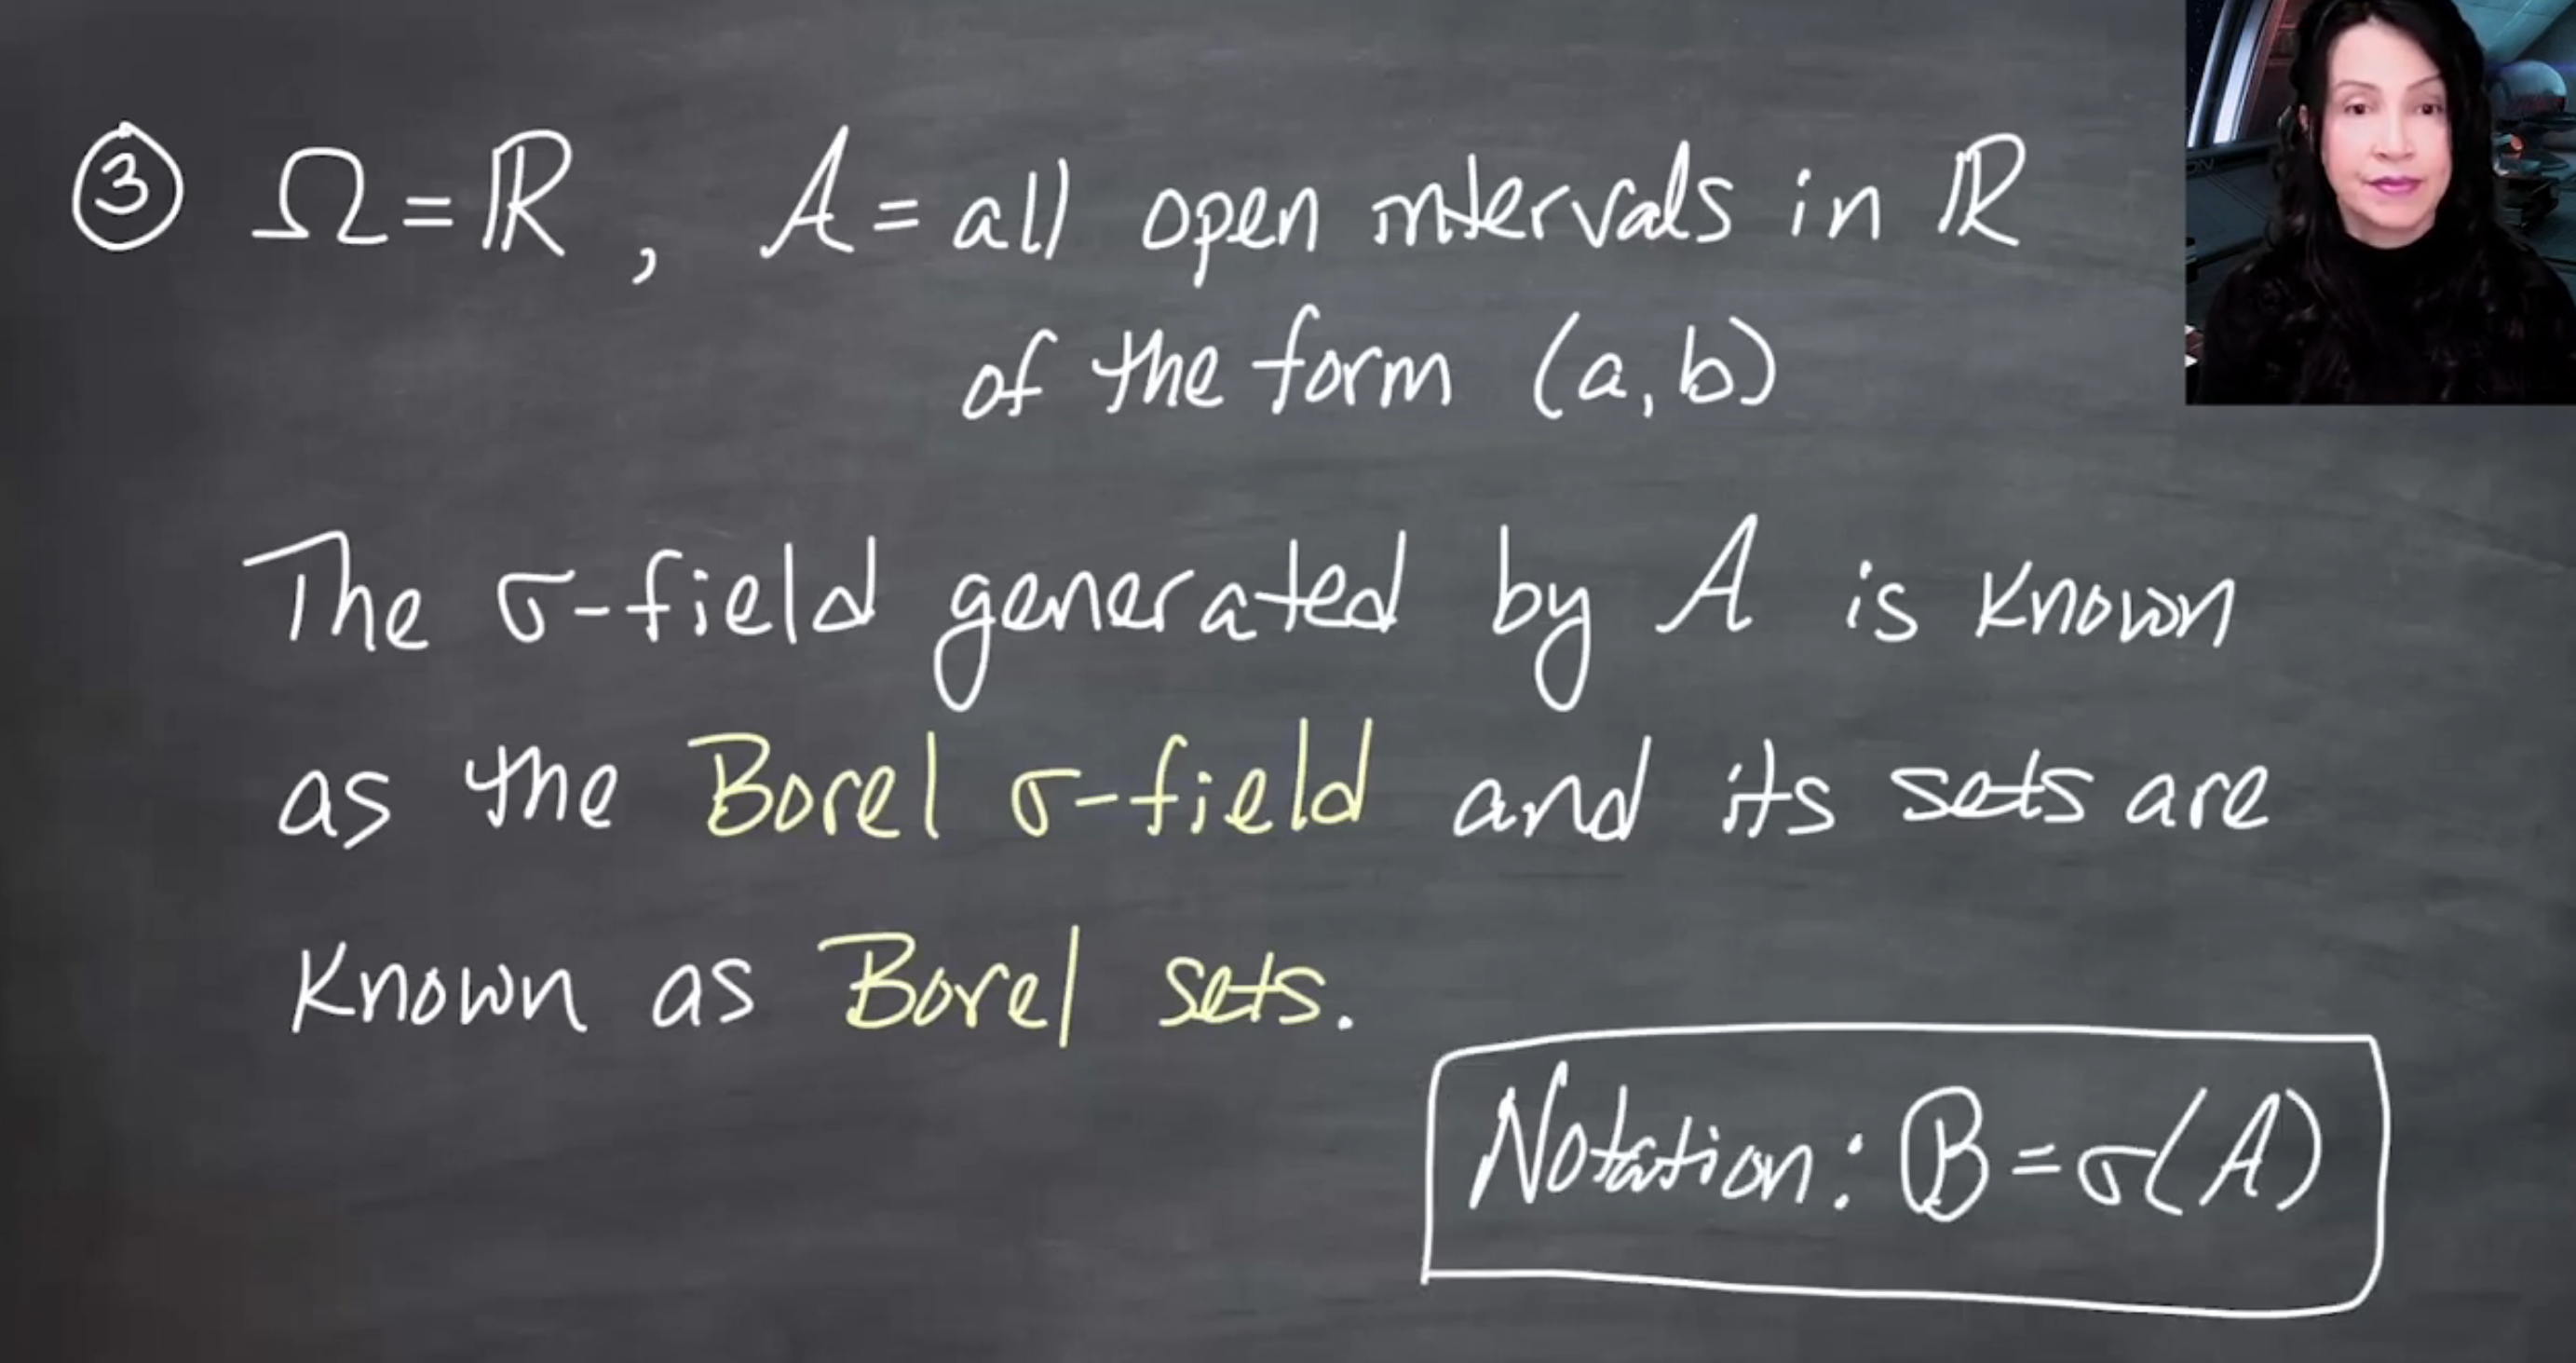 ③ Ω = ℝ , A = all open intervals in ℝ
of the form (a, b)
The σ-field generated by A is known
as the Borel σ-field and its sets are
known as Borel sets.
Notation: B = σ(A)